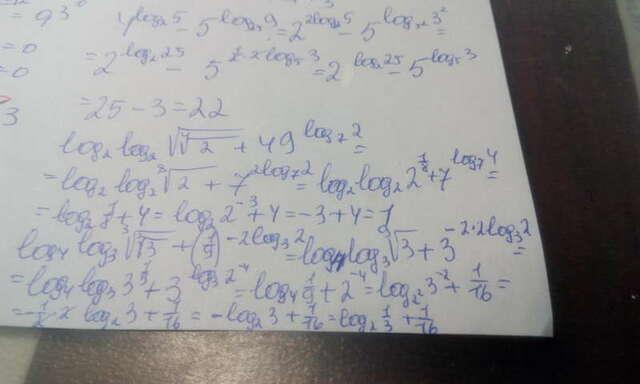 = 9 3⁰
= 0
= 0
3
4^(log₂5) - 5^(log₂₅9) = 2^(2log₂5) - 5^(log₅²3²) =
= 2^(log₂25) - 5^(½·2log₅3) = 2^(log₂25) - 5^(log₅3)
= 25 - 3 = 22
log₂ log₂ √(⁴√2) + 49^(log₇2) =
= log₂ log₂ ⁸√2 + 7^(2log₇2) = log₂ log₂ 2^(1/8) + 7^(log₇4) =
= log₂ 1/8 + 4 = log₂ 2⁻³ + 4 = -3 + 4 = 1
log₄ log₃ ³√(³√3) + (1/9)^(-2log₃2) = log₄ log₃ ⁹√3 + 3^(-2·2log₃2) =
= log₄ log₃ 3^(1/9) + 3^(log₃2⁻⁴) = log₄ 1/9 + 2⁻⁴ = log₂² 3⁻² + 1/16 =
= -1/2·2 log₂3 + 1/16 = -log₂3 + 1/16 = log₂ 1/3 + 1/16